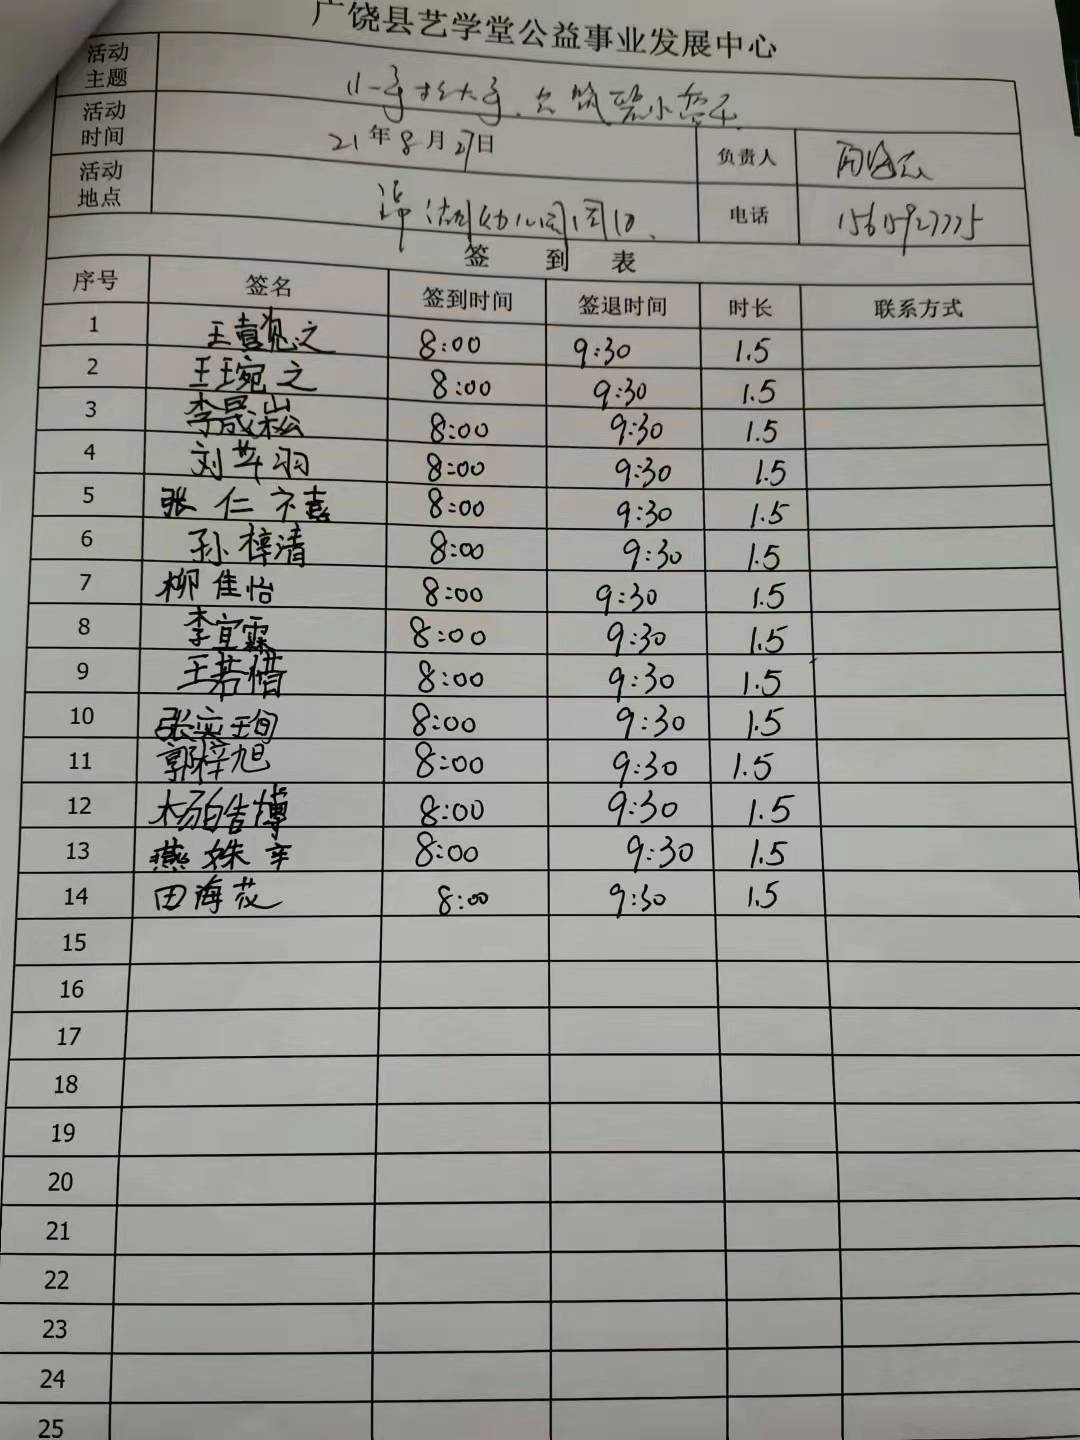 广饶县艺学堂公益事业发展中心
活动主题 小手拉大手
活动时间 21年8月27日 负责人
活动地点 幼儿园周边 电话 15615927775
签到表
序号 签名 签到时间 签退时间 时长 联系方式
1 8:00 9:30 1.5
2 王琬之 8:00 9:30 1.5
3 李晟淞 8:00 9:30 1.5
4 刘芊羽 8:00 9:30 1.5
5 张仁禧 8:00 9:30 1.5
6 孙梓清 8:00 9:30 1.5
7 柳佳怡 8:00 9:30 1.5
8 李宜霖 8:00 9:30 1.5
9 王若惜 8:00 9:30 1.5
10 张奕珣 8:00 9:30 1.5
11 郭梓旭 8:00 9:30 1.5
12 杨皓博 8:00 9:30 1.5
13 燕姝辛 8:00 9:30 1.5
14 田海花 8:00 9:30 1.5
15
16
17
18
19
20
21
22
23
24
25